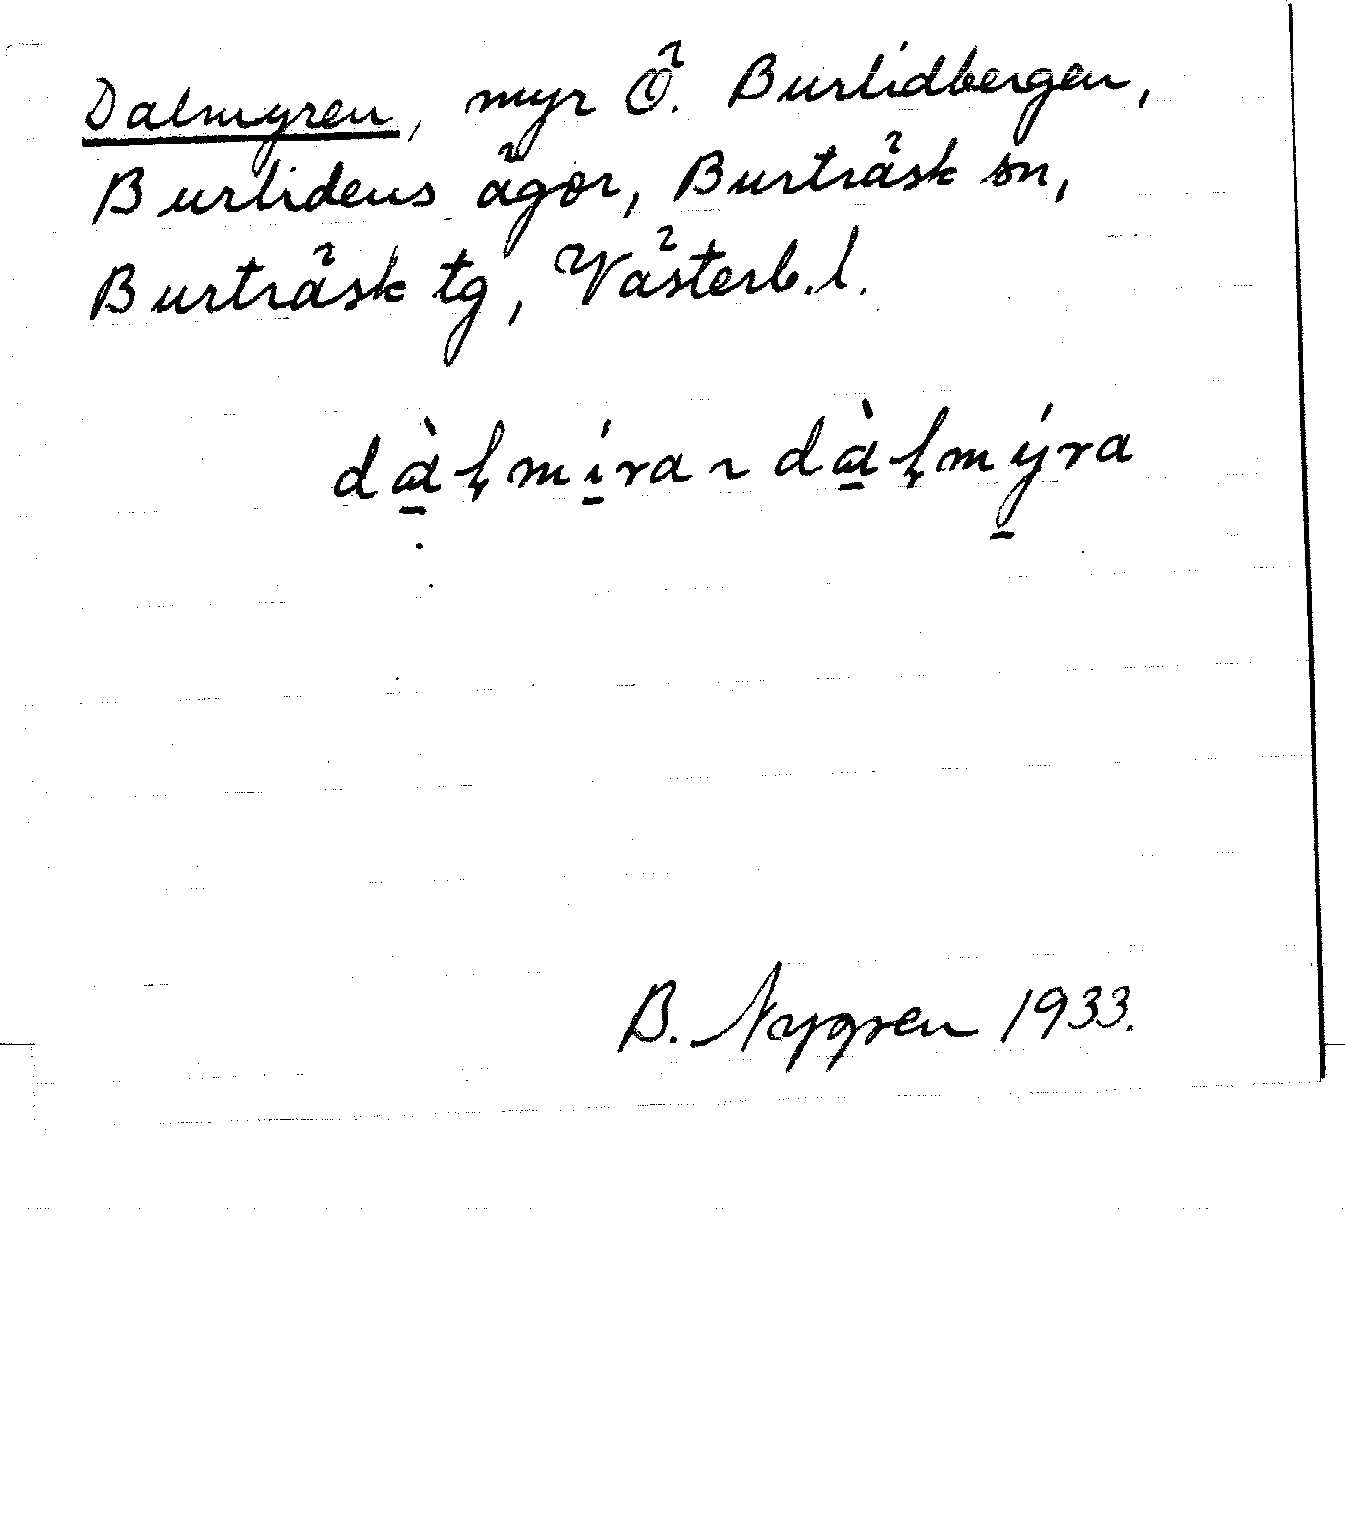 Dalmyren, myr Ö. Burlidbergen,
Burlidens ägor, Burträsk sn,
Burträsk tg, Västerb. l.
dàłmíra ~ dàłmýra
B. Nygren 1933.